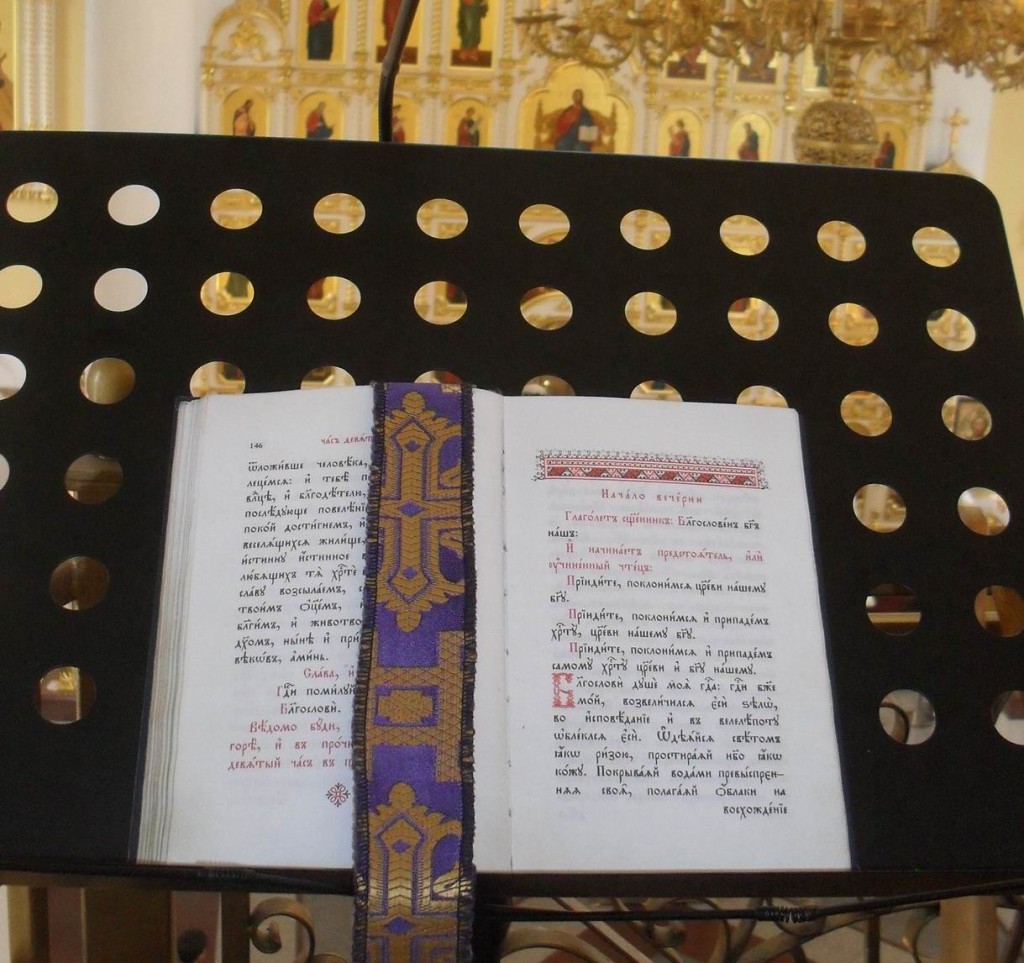 146
ча́съ девѧ́т
ѿложи́вше человѣ́ка,
лещемсѧ: и҆ тебѣ̀ п
влⷣцѣ, и҆ бл҃годѣ́телю,
послѣ́дующе повелѣ́нї
поко́й дости́гнемъ, и҆
веселѧ́щихсѧ жили́ще,
и҆́стинну и҆́стинное в
лю́бѧщихъ тѧ̀ хрⷭ҇тѐ
сла́ву возсыла́емъ, с
твои́мъ ѻ҆ц҃е́мъ,
бл҃ги́мъ, и҆ животво
дх҃омъ, ны́нѣ и҆ при́
вѣкѡ́въ, а҆ми́нь.
Сла́ва, и҆
Гдⷭ҇и поми́луй
Бл҃гословѝ.
Вѣ́домо бу́ди,
горѣ̀, и҆ въ про́чи
девѧ́тый ча́съ въ п
Нача́ло вече́рни
Глаго́летъ сщ҃е́нникъ: Бл҃гослове́нъ бг҃ъ
на́шъ:
И҆ начина́етъ предстоѧ́тель, и҆лѝ
ᲂу҆чине́нный чте́цъ:
Прїиди́те, поклони́мсѧ цр҃е́ви на́шему
бг҃у.
Прїиди́те, поклони́мсѧ и҆ припаде́мъ
хрⷭ҇ту̀, цр҃е́ви на́шему бг҃у.
Прїиди́те, поклони́мсѧ и҆ припаде́мъ
самому̀ хрⷭ҇ту̀ цр҃е́ви и҆ бг҃у на́шему.
Бл҃гословѝ душѐ моѧ̀ гдⷭ҇а: гдⷭ҇и бж҃е
мо́й, возвели́чилсѧ є҆сѝ ѕѣлѡ̀,
во и҆сповѣ́данїе и҆ въ велелѣ́поту
ѡ҆бле́клсѧ є҆сѝ. Ѡ҆дѣѧ́йсѧ свѣ́томъ
ꙗ҆́кѡ ри́зою, простира́ѧй не́бо ꙗ҆́кѡ
ко́жу. Покрыва́ѧй вода́ми превы́спрен-
нѧѧ своѧ̑, полага́ѧй ѻ҆́блаки на
восхожде́нїе